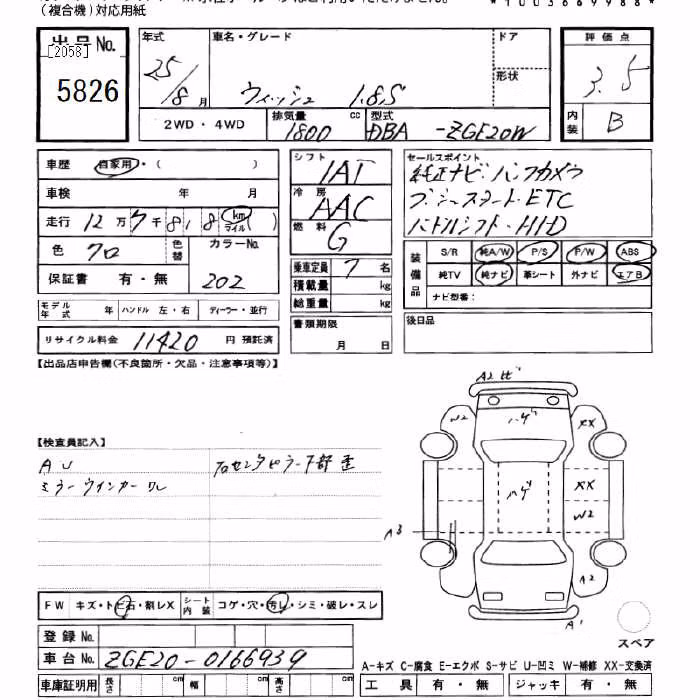 （複合機）対応用紙
*1003669988*
出品No.
[2058]
5826
年式
25/8月
車名・グレード
ウィッシュ 1.8S
ドア
形状
2WD・4WD
排気量 1800 cc
型式 DBA-ZGE20W
評価点
3.5
内装 B
車歴 自家用・( )
車検 年 月
走行 12万7千8,8 km マイル ( )
色 クロ
色替
カラーNo. 202
保証書 有・無
モデル年式 年 ハンドル 左・右 ディーラー・並行
リサイクル料金 11420 円 預託済
シフト IAT
冷房 AAC
燃料 G
乗車定員 7 名
積載量 kg
総重量 kg
書類期限
月 日
セールスポイント
純正ナビ・バックカメラ
プッシュスタート・ETC
パドルシフト・HID
装備品
S/R 純A/W P/S P/W ABS
純TV 純ナビ 革シート 外ナビ エアB
ナビ型番:
後日品
【出品店申告欄(不良箇所・欠品・注意事項等)】
【検査員記入】
AU
ミラーウインカーワレ
右センタピラー下部歪
A2 ビ
W2
ハゲ
XX
ハゲ
XX
W2
A3
A2
A1
スペア
FW キズ・トビ石・割レX
シート内装 コゲ・穴・汚レ・シミ・破レ・スレ
登録No.
車台No. ZGE20-0166939
車庫証明用 長さ cm 幅 cm 高さ cm
A-キズ C-腐食 E-エクボ S-サビ U-凹ミ W-補修 XX-交換済
工具 有・無 ジャッキ 有・無